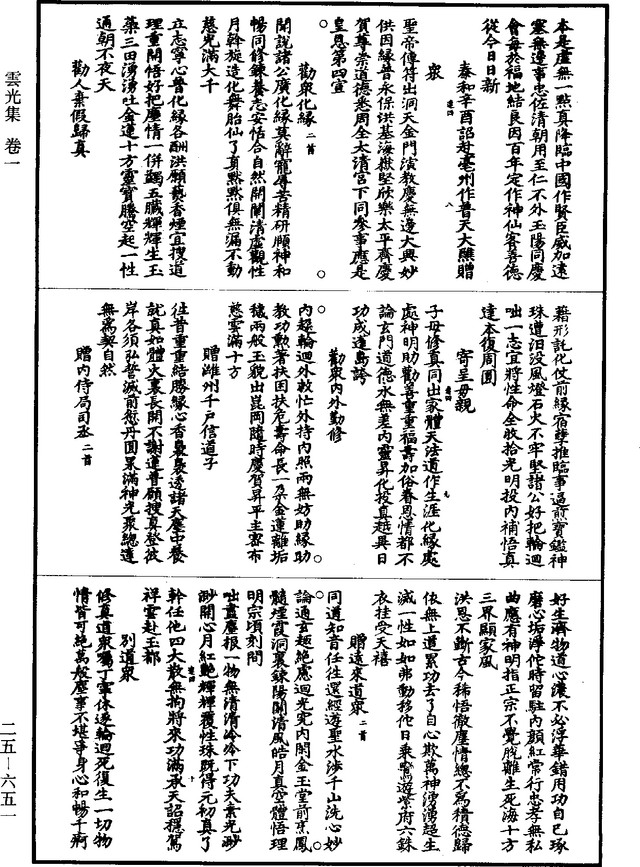 雲光集 卷一
二五—六五一
本是虛無一點真降臨中國作賢臣威加遠
塞無邊事忠佐清朝用至仁不外玉陽同慶
會每於福地結良因百年定作神仙客善德
從今日日新
泰和辛酉詔赴亳州作普天大醮贈
衆
聖帝傳符出洞天金門演教慶無邊大興妙
供因緣普永保洪基海嶽堅欣樂太平齊慶
賀尊崇道德悉周全太清宮下同叅事應是
皇恩第四宣
勸衆化緣二首
聞說諸公廣化緣莫辭寵辱苦精研願神和
暢同修鍊養志安恬合自然開闡清虛觀性
月斡旋造化舞胎仙了真默默俱無漏不動
慈光滿大千
立志寧心普化緣各酬洪願藝香煙宜搜道
理重開悟好把塵情一併蠲五臟輝輝生玉
蘂三田湧湧吐金蓮十方靈寶騰空起一性
通朝不夜天
勸人棄假歸真
藉形託化仗前緣宿孽推臨事逼煎寶鑑神
珠遭汨没風燈石火不牢堅諸公好把輪迴
咄一志宜將性命全收拾光明投內補悟真
達本復周圓
寄呈母親
子母修真同出家體天法道作生涯化緣處
處神明助勸善重重福壽加俗眷恩情都不
論玄門道德永無差內靈昇化投真趣異日
功成達島誇
勸衆內外勤修
內趍輪迴外救忙外持內照兩無妨助緣助
教功勳著扶困扶危壽命長一朵金蓮離垢
穢兩般玉貌出崑岡隨時慶賀昇平主密布
慈雲滿十方
贈濰州千戶信道子
往昔重重結勝緣心香裊裊透諸天塵中養
就真如體火裏長開不謝蓮普願搜真登彼
岸各須弘誓滅前愆丹圓果滿神光聚總達
無爲契自然
贈內侍局司丞二首
好生濟物道心濃不必浮華錯用功自己琢
磨心垢淨佗時留駐內顏紅常行忠孝無私
曲應有神明指正宗不覺脫離生死海十方
三界顯家風
洪恩不斷古今稀悟徹塵情總不爲積德歸
依無上道累功去了自心欺萬神湧湧超生
滅一性如如弗動移佗日乘鸞遊紫府六銖
衣挂受天禧
贈遠來道衆二首
同道知音任往還經遊聖水涉千山洗心妙
論通玄趣絶慮迴光究內閑金玉堂前烹鳳
髓煙霞洞裏鍊陽關清風皓月真空體悟理
明宗頃刻間
咄盡塵根一物無清清冷冷下功夫素光渺
渺開心月紅艷輝輝覆性珠既得元初真了
幹任他四大散無拘將來功滿承天詔穩駕
祥雲赴玉都
別道衆
修真道衆囑丁寧休逐輪迴死復生一切物
情皆可絶萬般塵事不堪爭身心和暢千痾